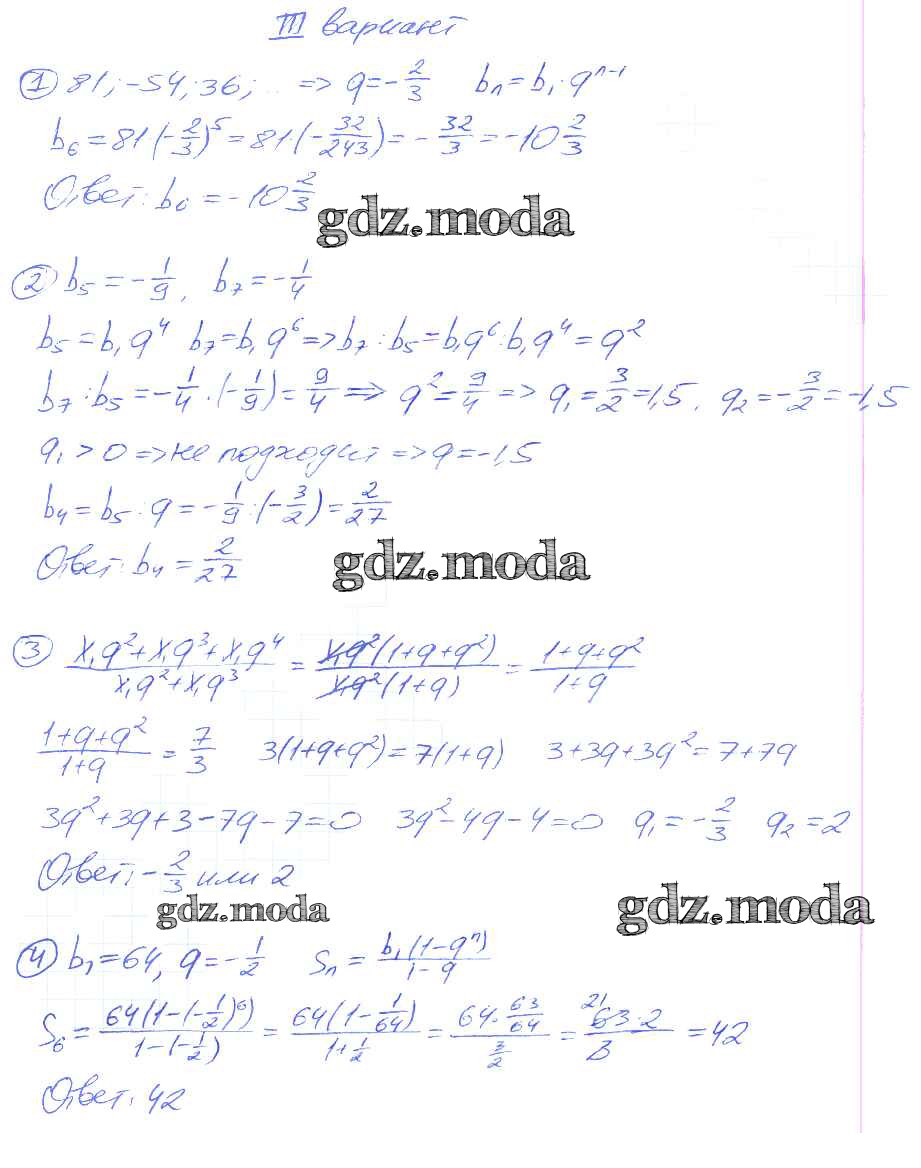 III вариант
① 81; -54; 36; ... => q = -2/3   bₙ = b₁·qⁿ⁻¹
b₆ = 81(-2/3)⁵ = 81·(-32/243) = -32/3 = -10 2/3
Ответ: b₆ = -10 2/3
gdz.moda
② b₅ = -1/9, b₇ = -1/4
b₅ = b₁q⁴  b₇ = b₁q⁶ => b₇:b₅ = b₁q⁶:b₁q⁴ = q²
b₇:b₅ = -1/4·(-1/9) = 9/4 => q² = 9/4 => q₁ = 3/2 = 1,5, q₂ = -3/2 = -1,5
q₁ > 0 => не подходит => q = -1,5
b₄ = b₅·q = -1/9:(-3/2) = 2/27
Ответ: b₄ = 2/27
gdz.moda
③ (x₁q²+x₁q³+x₁q⁴)/(x₁q²+x₁q³) = (x₁q²(1+q+q²))/(x₁q²(1+q)) = (1+q+q²)/(1+q)
(1+q+q²)/(1+q) = 7/3   3(1+q+q²) = 7(1+q)   3+3q+3q² = 7+7q
3q²+3q+3-7q-7=0   3q²-4q-4=0   q₁ = -2/3   q₂ = 2
Ответ: -2/3 или 2
gdz.moda gdz.moda
④ b₁ = 64, q = -1/2   Sₙ = b₁(1-qⁿ)/(1-q)
S₆ = 64(1-(-1/2)⁶)/(1-(-1/2)) = 64(1-1/64)/(1+1/2) = (64·63/64)/(3/2) = 21 63·2/3 = 42
Ответ: 42